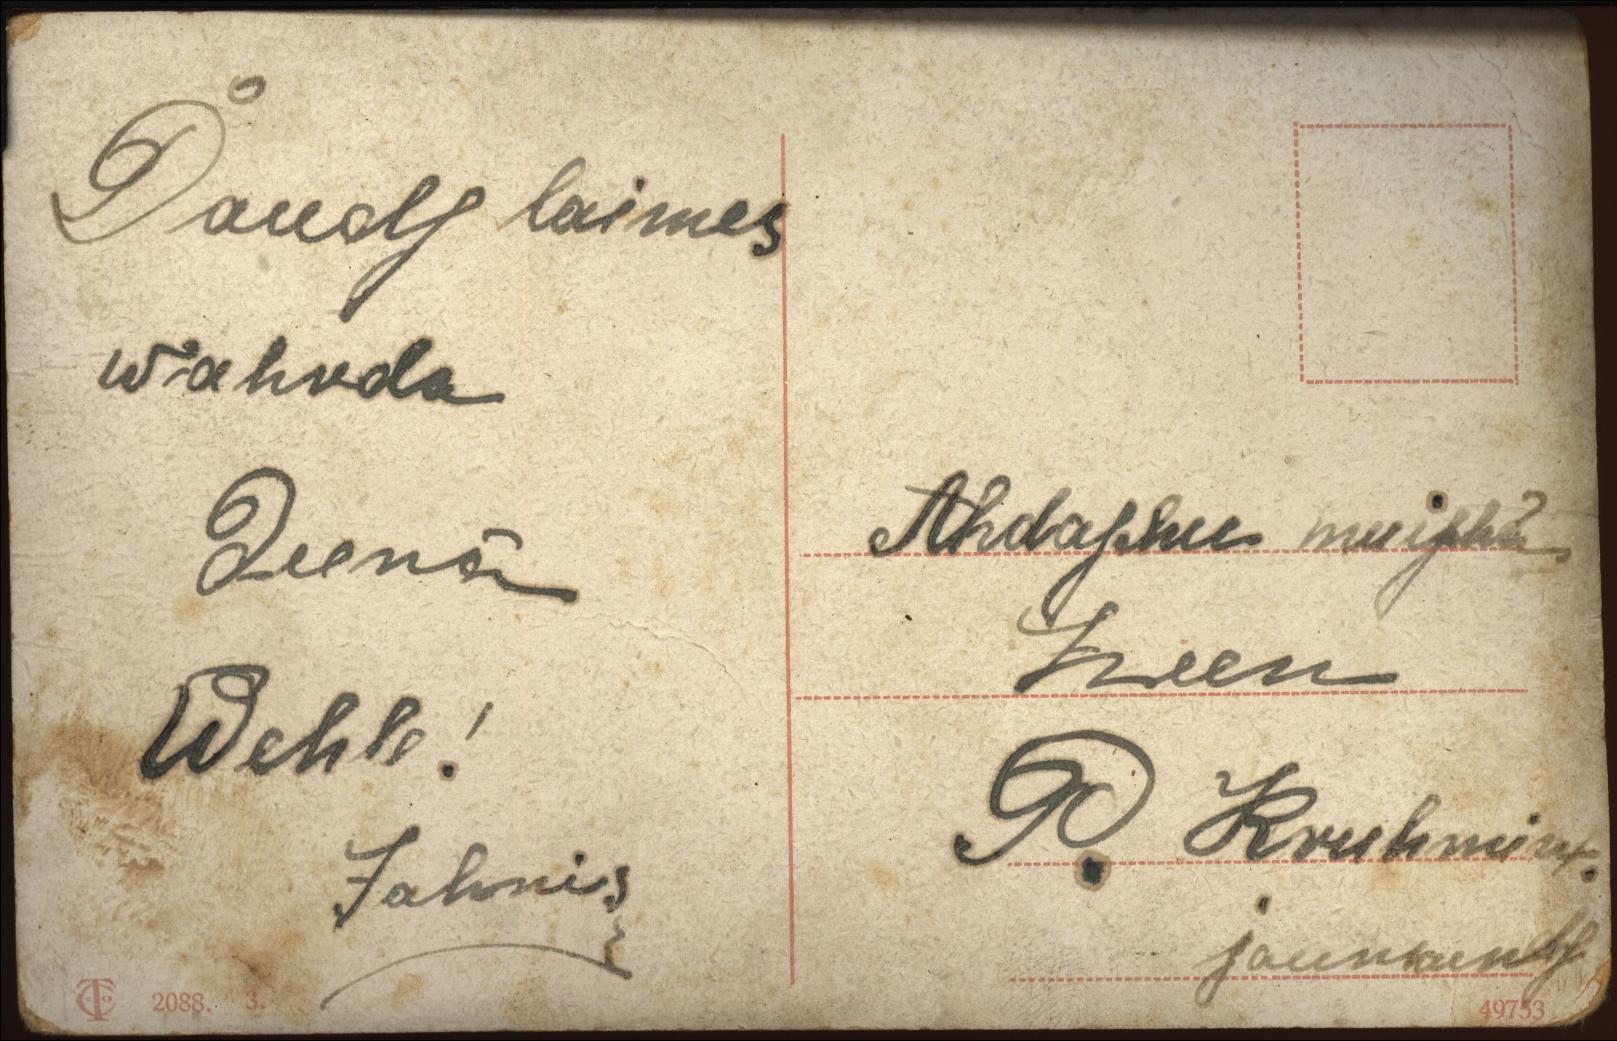 Daudſ laimes
wahrda
Deenā
Wehle!
Jahnis
Ahdaſchu muiſchā
Zeen
P. Kruhmin
jaunkundſ
2088. 3.
49753